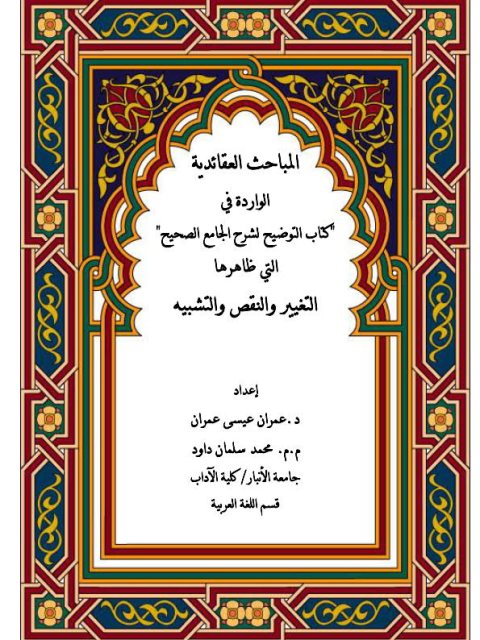 المباحث العقائدية
الواردة في
"كتاب التوضيح لشرح الجامع الصحيح"
التي ظاهرها
التغيير والنقص والتشبيه
إعداد
د.عمران عيسى عمران
م.م. محمد سلمان داود
جامعة الأنبار/كلية الآداب
قسم اللغة العربية